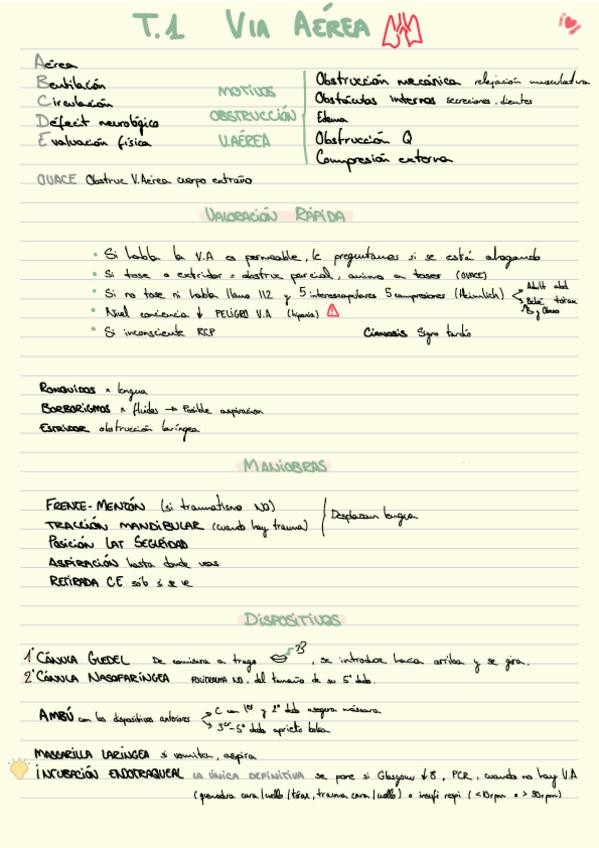 T.1 VIA AÉREA
Aérea
Bentilación
Circulación
Défecit neurológico
Evaluación física
MOTIVOS
OBSTRUCCIÓN
V.AÉREA
Obstrucción mecánica relajación musculatura
Obstáculos internos secreciones, dientes
Edema
Obstrucción Q
Compresión externa
OVACE Obstruc V.Aérea cuerpo extraño
VALORACIÓN RÁPIDA
• Si habla la V.A es permeable, le preguntamos si se está ahogando
• Si tose o estridor = obstruc parcial, animo a toser (OVACE)
• Si no tose ni habla llamo 112 y 5 interescapulares 5 compresiones (Heimlich)
Adult abd
Bebé tórax
• Nivel conciencia ↓ PELIGRO V.A (hipoxia)
• Si inconsciente RCP
Cianosis Signo tardío
RONQUIDOS x lengua
BORBORIGMOS x fluidos → Posible aspiracion
ESTRIDOR obstrucción laríngea
MANIOBRAS
FRENTE-MENTÓN (si traumatismo NO)
TRACCIÓN MANDIBULAR (cuando hay trauma)
Desplazan lengua
POSICIÓN LAT SEGURIDAD
ASPIRACIÓN hasta donde veas
RETIRADA C.E sólo si se ve
DISPOSITIVOS
1º CÁNULA GUEDEL De comisura a trago, se introduce hacia arriba y se gira.
2º CÁNULA NASOFARÍNGEA POLITRAUMA NO, del tamaño de su 5º dedo.
AMBÚ con los dispositivos anteriores
C con 1er y 2º dedo asegura máscara
3er-5º dedo aprieto bolsa
MASCARILLA LARÍNGEA si vomita, aspira
INCUBACIÓN ENDOTRAQUEAL LA ÚNICA DEFINITIVA se pone si Glasgow ↓8, PCR, cuando no hay V.A
(quemadura cara/cuello/tórax, trauma cara/cuello) o insufi respi (<10rpm o >30rpm)